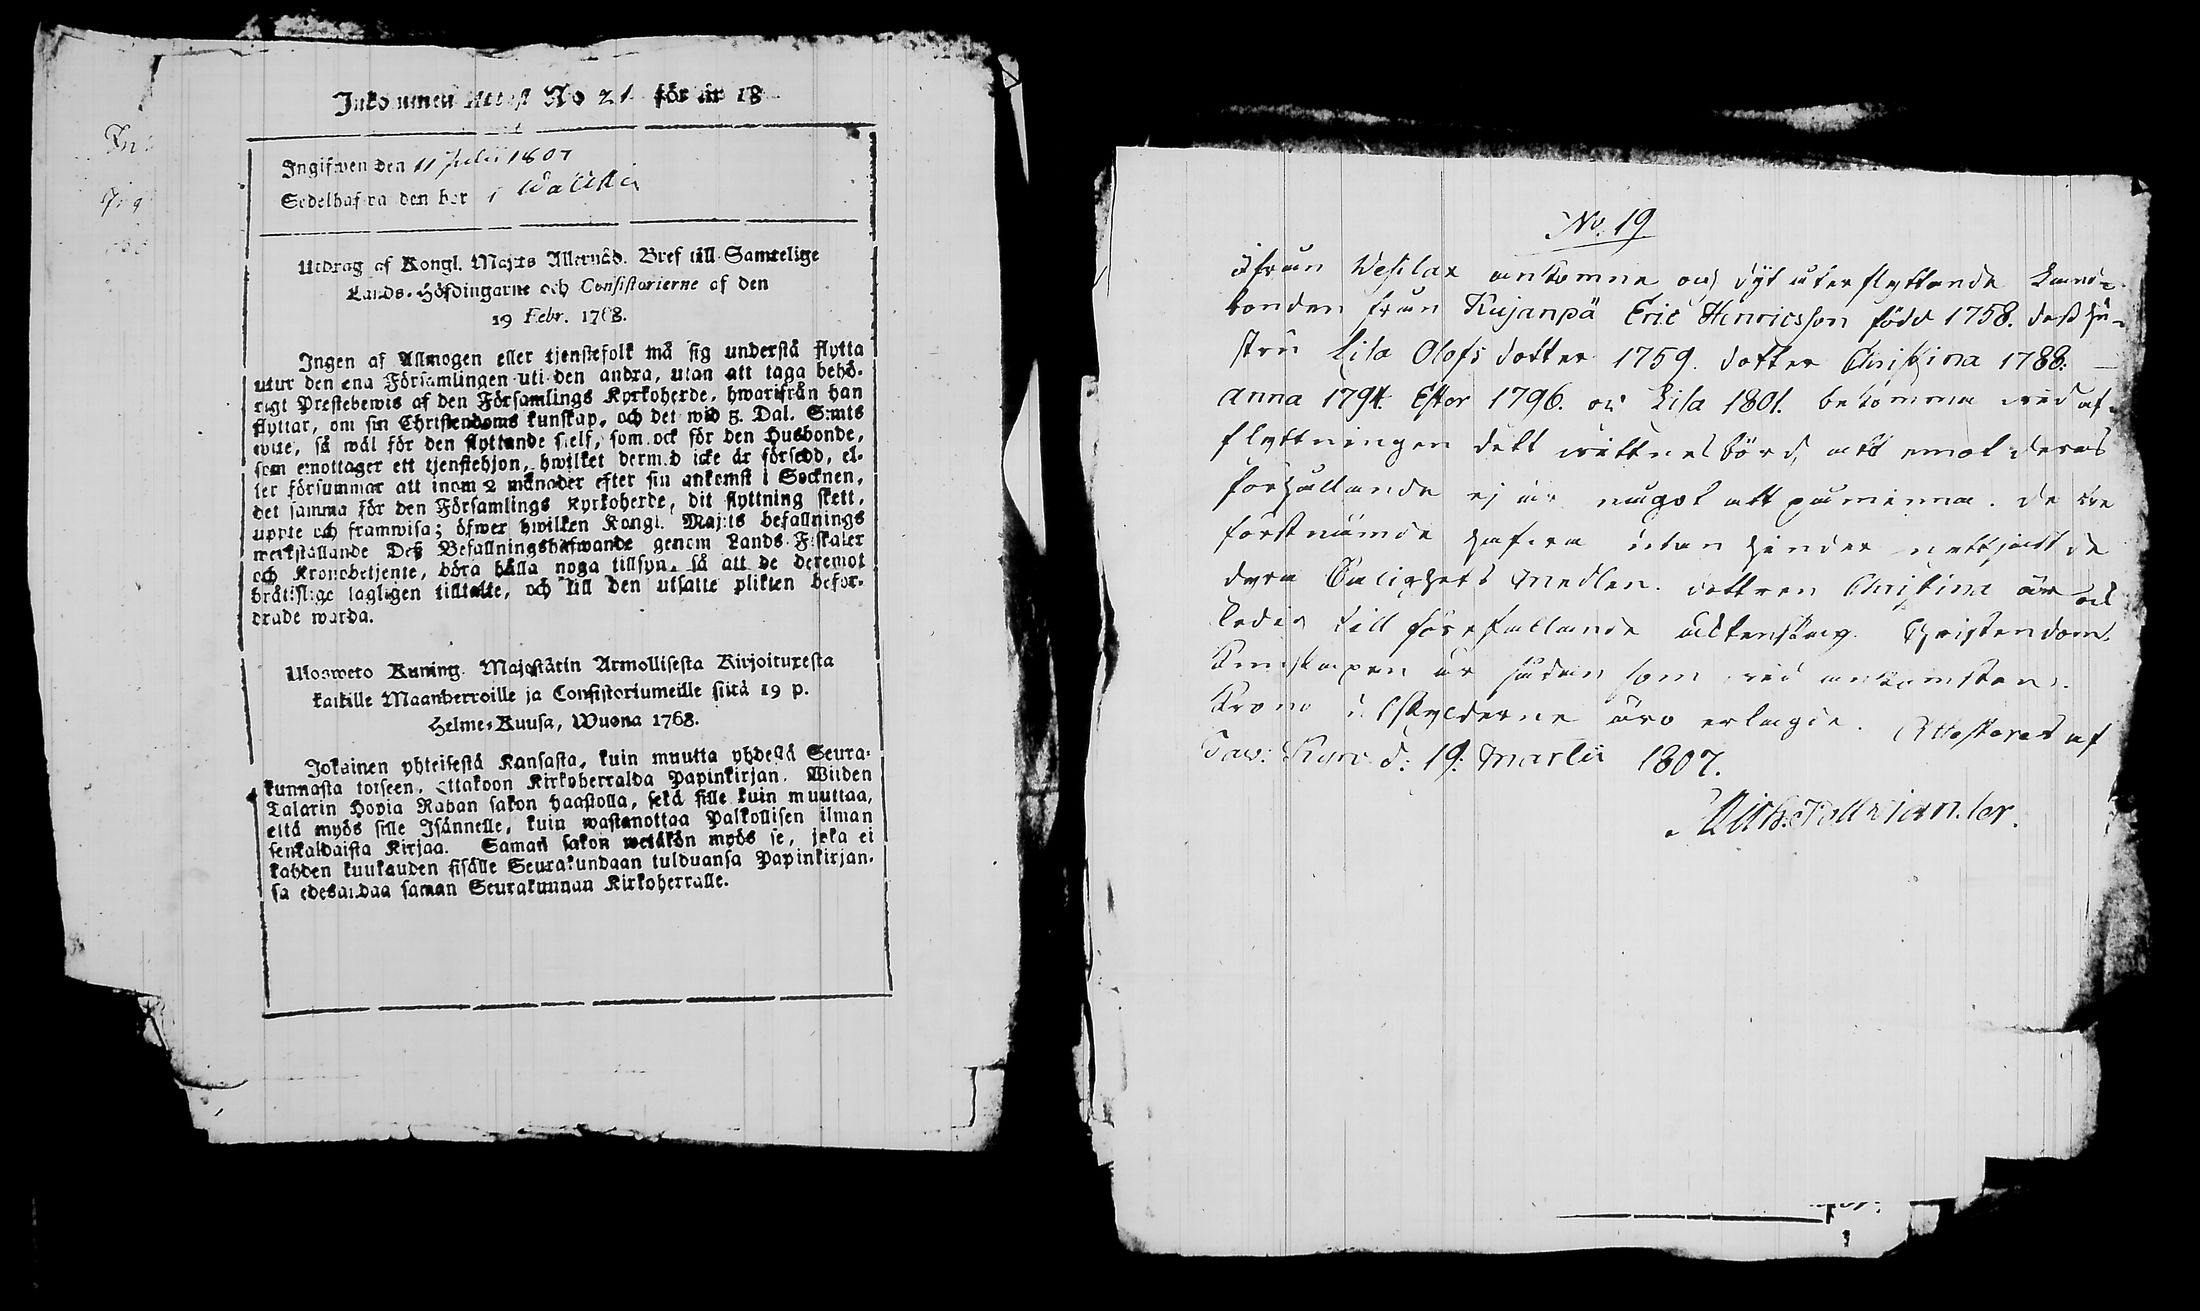 Inkommen Attest No 21. för år 18
Ingifwen den 11 Julii 1807
Sedelhafwa den bor i
Utdrag af Kongl. Maj:ts Allernåd. Bref till Samtelige
Lands-Höfdingarne och Consistorierne af den
19 Febr. 1768.
Ingen af Allmogen eller tjenstefolk må sig understå flytta
utur den ena Församlingen uti den andra, utan att taga behö-
rigt Prestebewis af den Församlings Kyrkoherde, hwarifrån han
flyttar, om sin Christendoms kunskap, och det wid 5. Dal. S:mts
wite, så wäl för den flyttande sielf, som ock för den Husbonde,
som emottager ett tjenstehjon, hwilket derm.d icke är försedd, el-
ler försummar att inom 2 månader efter sin ankomst i Socknen,
det samma för den Församlings Kyrkoherde, dit flyttning skett,
uppte och framwisa; öfwer hwilken Kongl. Maj:ts befallnings
werkställande Deß Befallningshafwande genom Lands-Fiskaler
och Kronobetjente, böra hålla noga tillsyn, så att de deremot
brättslige lagligen tilltalte, och till den utsatte plikten befor-
drade warda.
Ulosweto Kuning. Majestätin Armollisesta Kirjoituxesta
kaikille Maanherroille ja Consistoriumeille siitä 19 p.
Helme-Kuusa, Wuona 1768.
Jokainen yhteisestä Kansasta, kuin muutta yhdestä Seura-
kunnasta toiseen, Ottakoon Kirkoherralda Papinkirjan, Wiiden
Talarin Hopia Rahan sakon haastolla, sekä sille kuin muuttaa,
että myös sille Isännelle, kuin wastanottaa Palkollisen ilman
senkaldaista Kirjaa. Saman sakon wetäkön myös se, joka ei
kahden kuukauden sisälle Seurakundaan tulduansa Papinkirjan-
sa edesandaa saman Seurakunnan Kirkoherralle.
No. 19
Ifrån Wesilax ankomne och dyt återflyttande Land-
bonden från Kujanpä Eric Henricsson född 1758. deß hu-
stru Lisa Olofs dotter 1759. dotter Christina 1788.
Anna 1794. Ester 1796. och Lisa 1801. bekomma wid af-
flyttningen dett wittnesbörd, att emot deras
förhållande ej är något att påminna. De tre
förstnämde hafwa utan hinder nattjadt de
dyra Salighets Medlen. dottren Christina är och
ledig till förefallande äcktenskap. Christendoms
Kunskapen är sådan som wid ankomsten.
Krono utskylderne äro erlagde. Attesteras af
d: 19: Martii 1807.